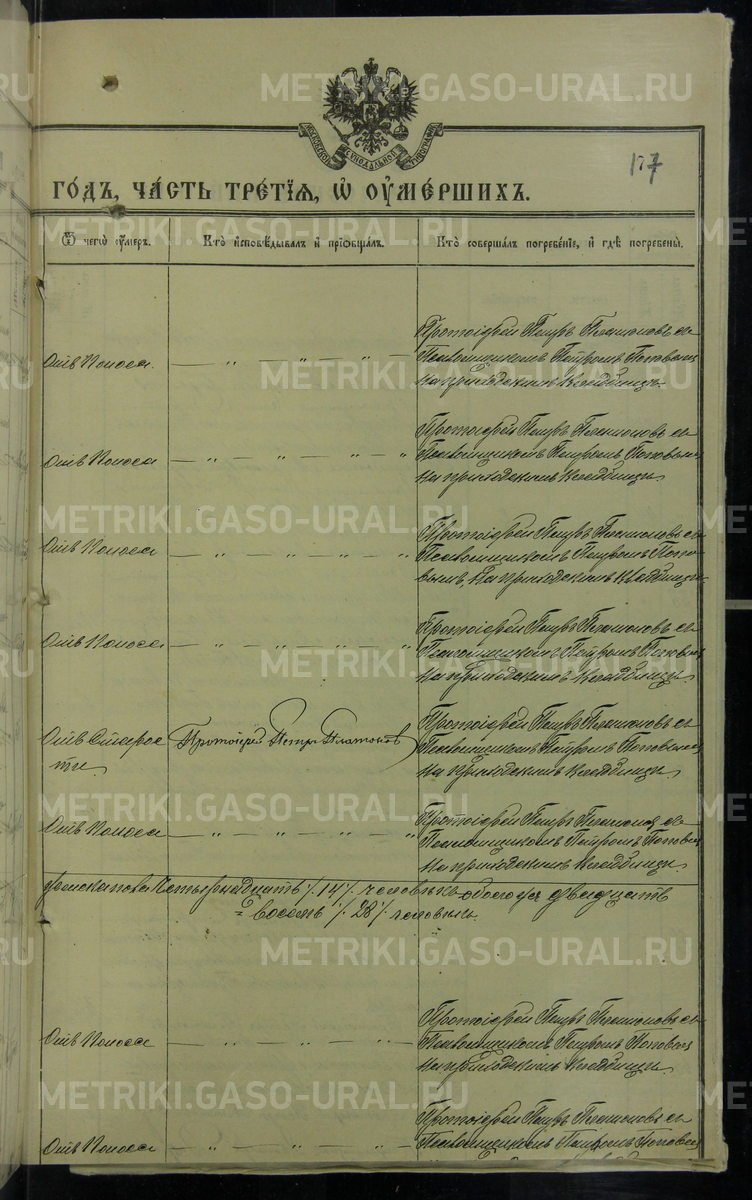 МОСКОВСКОЙ СѴНОДАЛЬНОЙ ТИПОГРАФІИ
177
ГО́ДЪ, ЧА́СТЬ ТРЕ́ТІѦ, Ѽ ОУ҆МЕ́РШИХЪ.
Ѿ чегѡ̀ оу҆́меръ.
Кто̀ и҆сповѣ́дывалъ и҆ прїѡбща́лъ.
Кто̀ соверша́лъ погребе́нїе, и҆ гдѣ̀ погребены̀.
Отъ Поноса
Протоіерей Петръ Платоновъ съ
Псаломщикомъ Петромъ Поповымъ
На приходскомъ кладбищѣ
Отъ Поноса
Протоіерей Петръ Платоновъ съ
Псаломщикомъ Петромъ Поповымъ
На приходскомъ кладбищѣ
Отъ Поноса
Протоіерей Петръ Платоновъ съ
Псаломщикомъ Петромъ Попо-
вымъ, На приходскомъ кладбищѣ
Отъ Поноса
Протоіерей Петръ Платоновъ съ
Псаломщикомъ Петромъ Поповымъ
На приходскомъ кладбищѣ
Отъ Старос
ти
Протоіерей Петръ Платоновъ
Протоіерей Петръ Платоновъ съ
Псаломщикомъ Петромъ Поповымъ
На приходскомъ кладбищѣ
Отъ Поноса
Протоіерей Петръ Платоновъ съ
Псаломщикомъ Петромъ Поповымъ
На приходскомъ кладбищѣ
женскаго пола Четырнадцать /14/ человѣкъ обоего двадцать
= восемь /28/ человѣкъ
Отъ Поноса
Протоіерей Петръ Платоновъ съ
Псаломщикомъ Петромъ Поповымъ
На приходскомъ кладбищѣ
Отъ Поноса
Протоіерей Петръ Платоновъ съ
Псаломщикомъ Петромъ Поповымъ
METRIKI.GASO-URAL.RU
METRIKI.GASO-URAL.RU
METRIKI.GASO-URAL.RU
METRIKI.GASO-URAL.RU
METRIKI.GASO-URAL.RU
METRIKI.GASO-URAL.RU
METRIKI.GASO-URAL.RU
METRIKI.GASO-URAL.RU